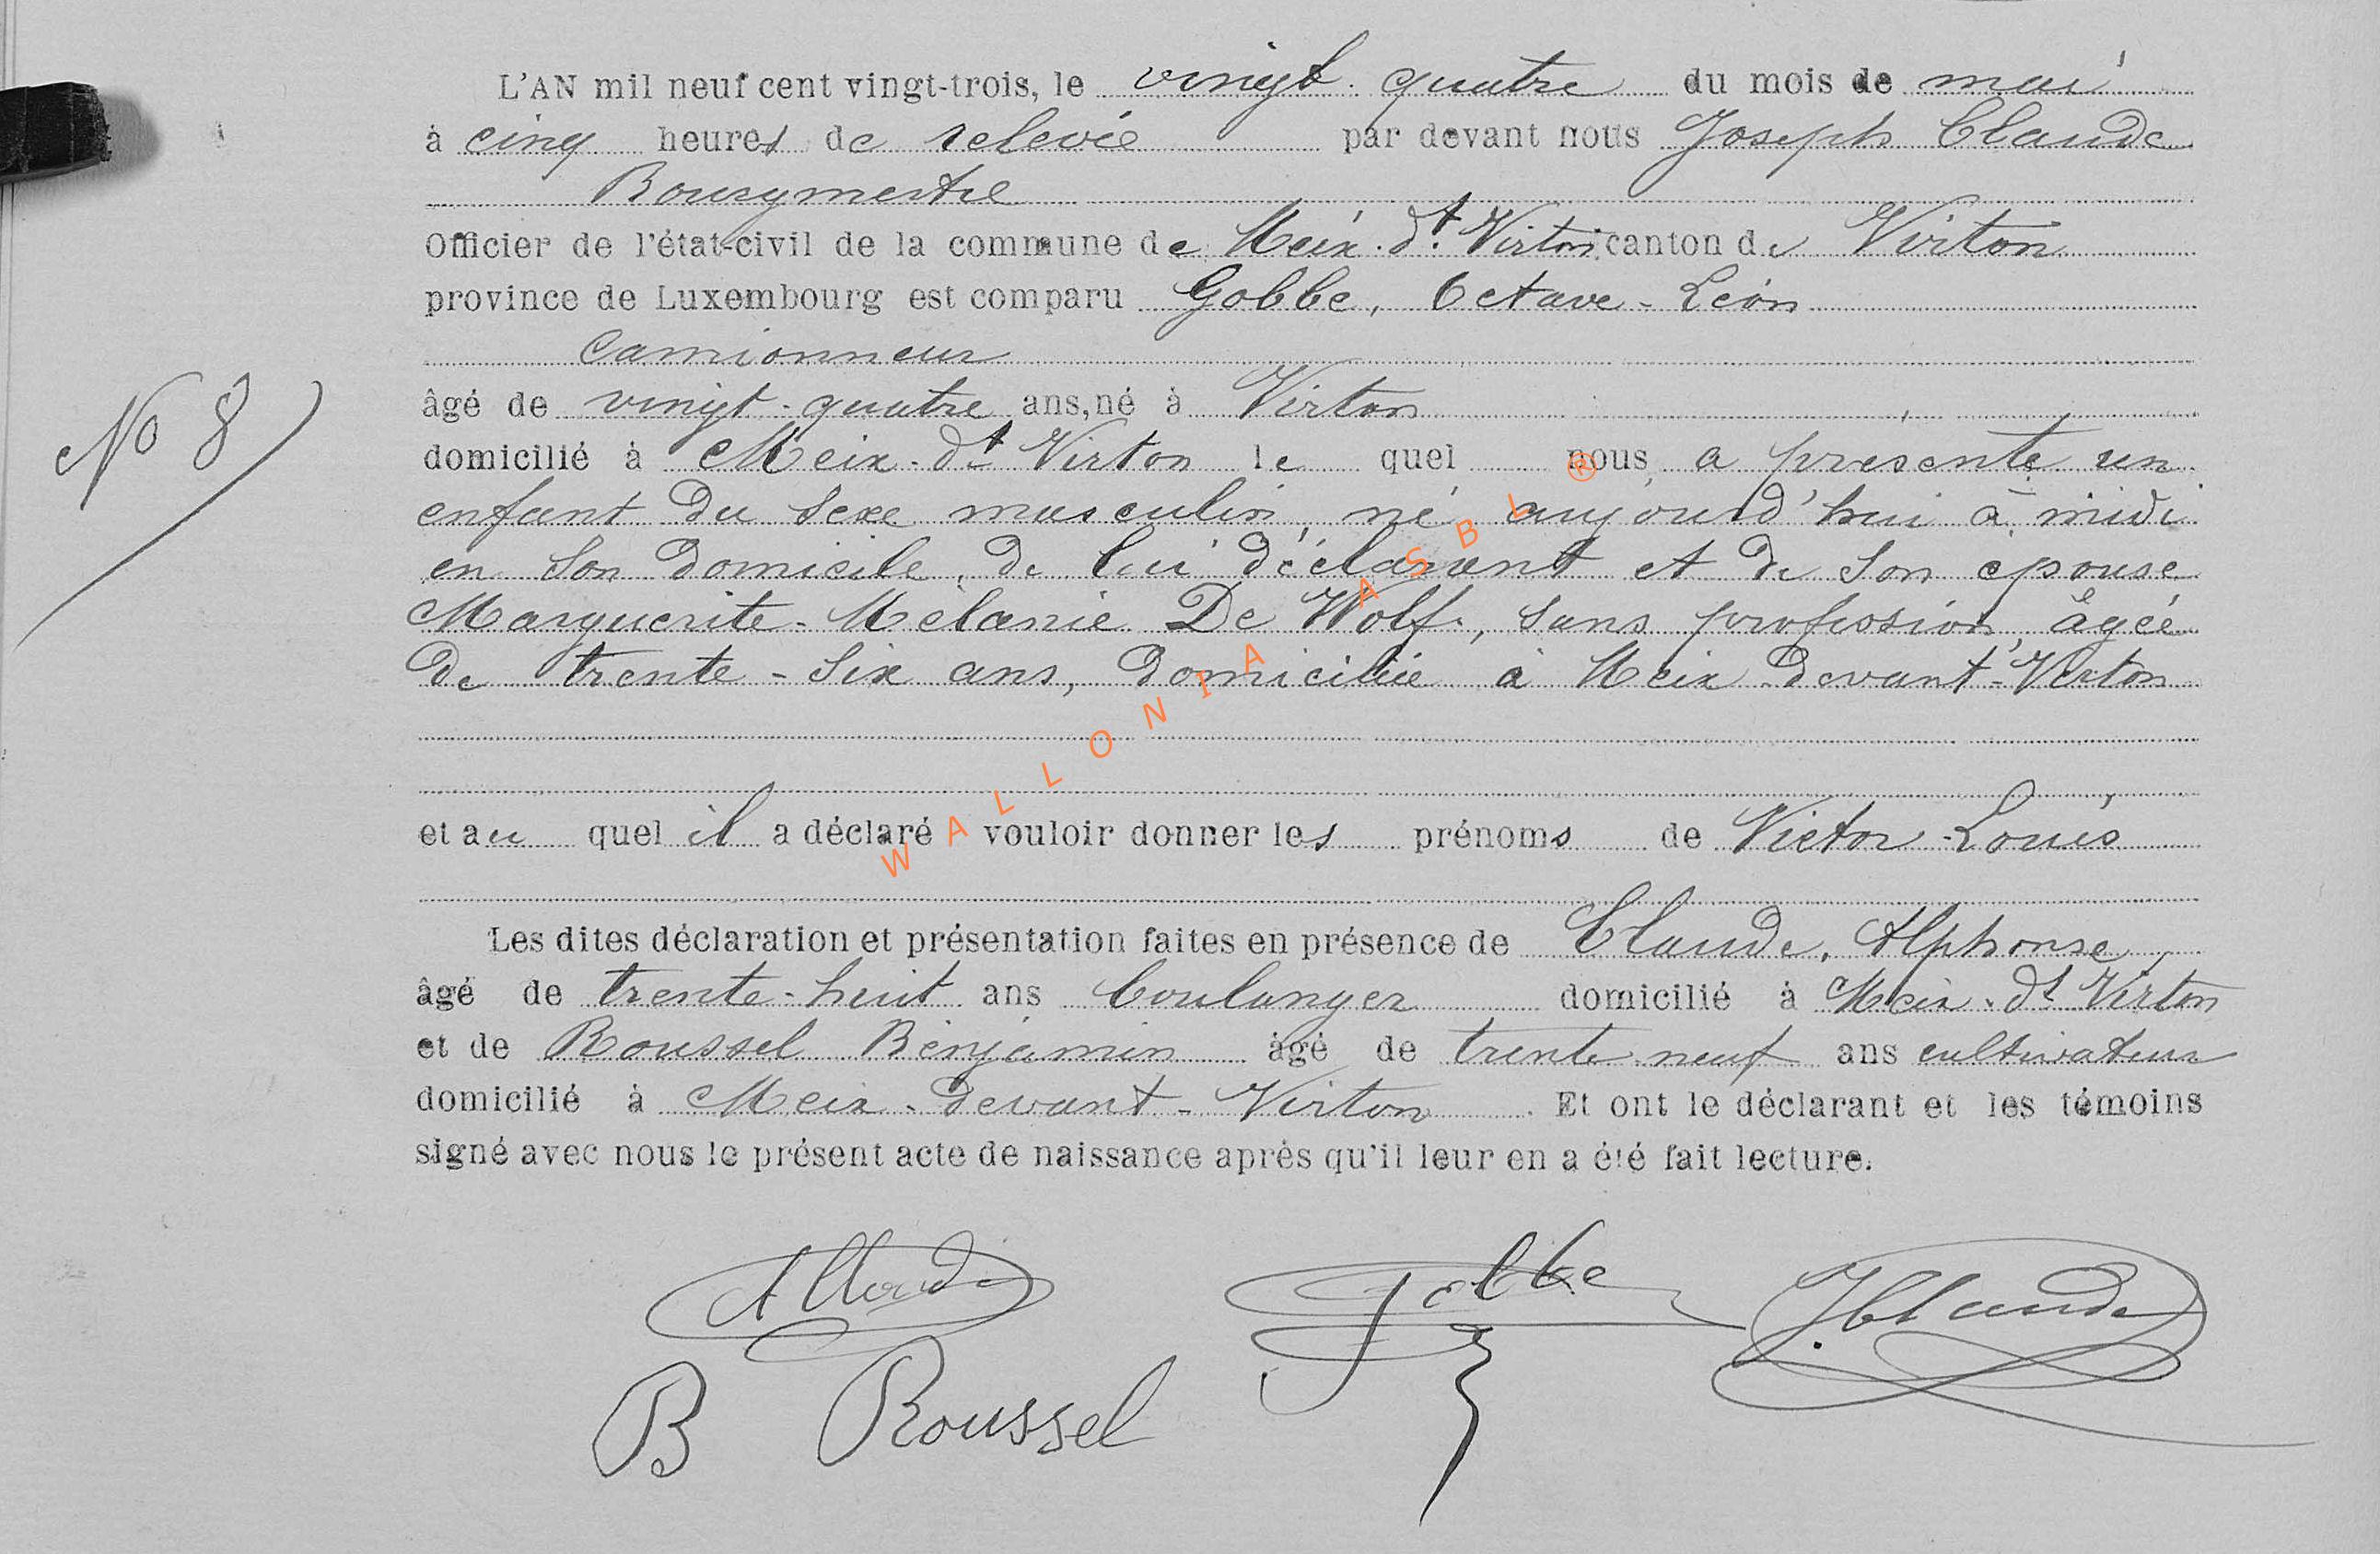 L'AN mil neuf cent vingt-trois, le vingt-quatre du mois de mai
à cinq heures de relevée par devant nous Joseph Claude
Bourgmestre
Officier de l'état-civil de la commune de Meix-dt Virton canton de Virton
province de Luxembourg est comparu Gobbe, Octave-Léon
Camionneur
âgé de vingt-quatre ans, né à Virton
N° 8
domicilié à Meix-dt Virton le quel nous a présenté un
enfant du sexe masculin, né aujourd'hui à midi
en son domicile, de lui déclarant et de son épouse
Marguerite-Mélanie De Wolf, sans profession, âgée
de trente-six ans, domiciliée à Meix-devant-Virton
et au quel il a déclaré vouloir donner les prénoms de Victor-Louis
Les dites déclaration et présentation faites en présence de Claude, Alphonse,
âgé de trente-huit ans boulanger domicilié à Meix-dt Virton
et de Roussel Benjamin âgé de trente-neuf ans cultivateur
domicilié à Meix-devant-Virton. Et ont le déclarant et les témoins
signé avec nous le présent acte de naissance après qu'il leur en a été fait lecture.
A Claude Gobbe J. Claude
B Roussel
WALLONIA ASBL ®